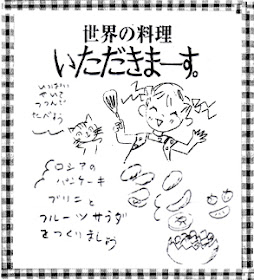 世界の料理
いただきまーす。
いっぱい
やいて
つつんで
たべよう
ロシアの
パンケーキ
ブリニと
フルーツサラダ
をつくりましょう